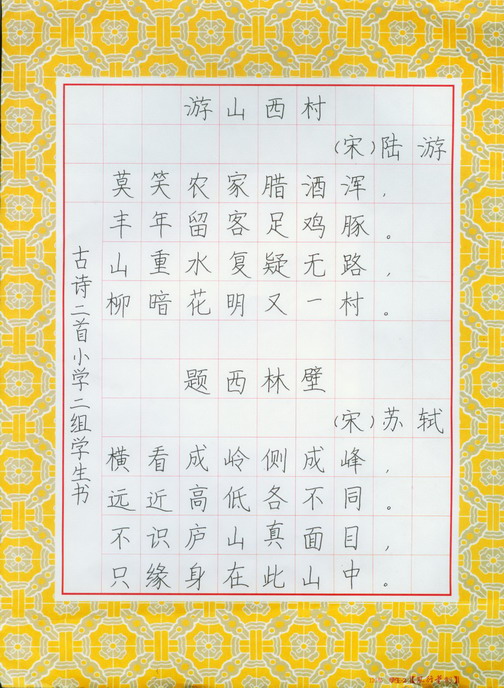 游山西村
（宋）陆游
莫笑农家腊酒浑，
丰年留客足鸡豚。
山重水复疑无路，
柳暗花明又一村。
题西林壁
（宋）苏轼
横看成岭侧成峰，
远近高低各不同。
不识庐山真面目，
只缘身在此山中。
古诗二首小学二组学生书